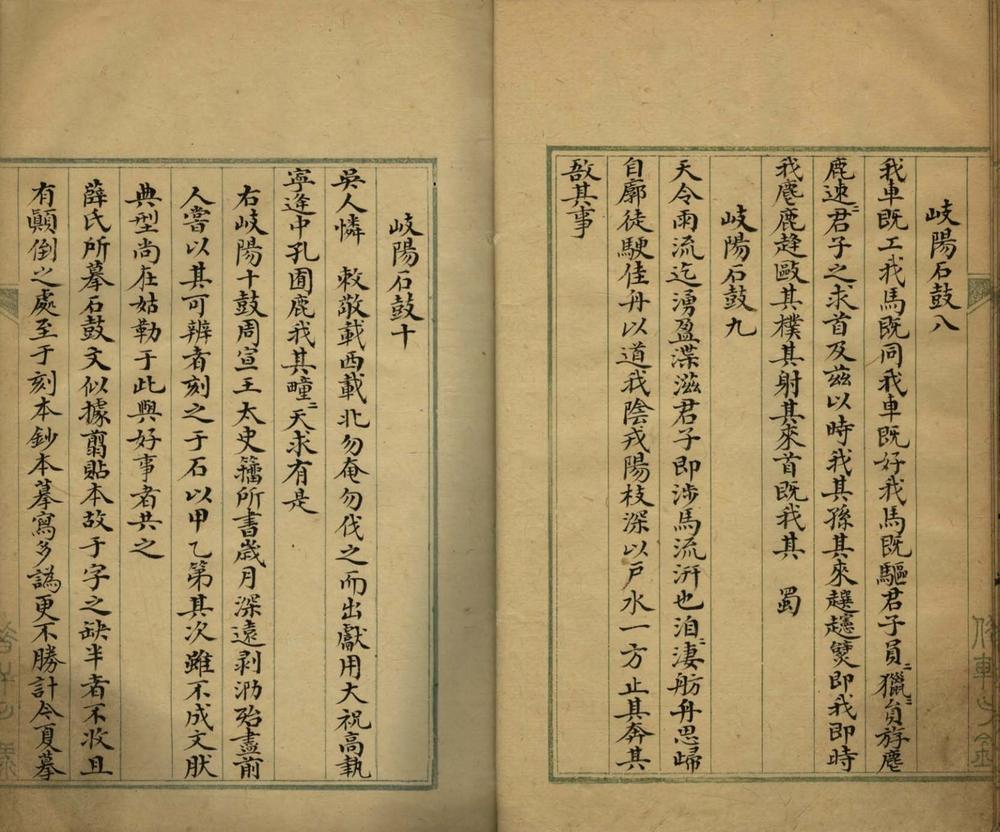 岐陽石鼓八
我車既工我馬既同我車既好我馬既驅君子員〻獵〻員斿麀
鹿速〻君子之求首及茲以時我其孫其來趩趩㚇即我即時
我麀鹿趚敺其樸其射其來首既我其　蜀
岐陽石鼓九
天令雨流迄湧盈渫滋君子即涉馬流汧也洎〻淒舫舟思歸
自廓徒駛佳舟以道我陰戎陽枝深以戶水一方止其奔其
敔其事
岐陽石鼓十
吳人憐　敕敬載西載北勿奄勿伐之而出獻用大祝高執
寧逢中孔囿鹿我其疃〻天求有是
右岐陽十鼓周宣王太史籀所書歲月深遠剥泐殆盡前
人嘗以其可辨者刻之于石以甲乙第其次雖不成文肰
典型尚在姑勒于此與好事者共之
薛氏所摹石鼓文似據翦貼本故于字之缺半者不收且
有顛倒之處至于刻本鈔本摹寫多譌更不勝計今夏摹